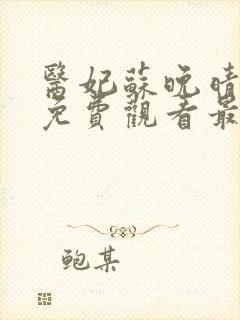 醫妃蘇晚晴
免費觀看最
鲍某